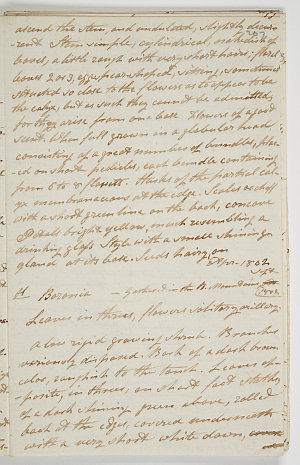 ascend the stem, and undivided, slightly decur-
rent. Stem simple, cylindrical, reddish
bovel, a little rough with very short hairs; floral
leaves 2 or 3, egg-pear-shaped, sitting, sometimes
situated so close to the flowers as to appear to be
the calyx, but as such they cannot be admitted,
for they arise from one base. Flowers of a good
scent. When full grown in a globular head
consisting of a great number of bundles, plac-
ed on short pedicles, each bundle containing
from 6 to 8 florets. Husks of the partial cal-
yx membranaceous at the edge. Scales or chaff
with a short green line on the back, concave
Petals bright yellow, much resembling a
drinking glass. Style with a small shining
gland at its base. Seeds hairy
Apr. 1802
Boronia — Gathered in the B. Mountains Sept. 1803.
Leaves in threes, flowers solitary
a low rigid growing shrub. Branches
variously disposed. Bark of a dark brown
color, roughish to the touch. Leaves op-
posite, in threes, on short foot stalks,
of a dark shining green above, rolled
back at the edges, covered underneath
with a very short white down,